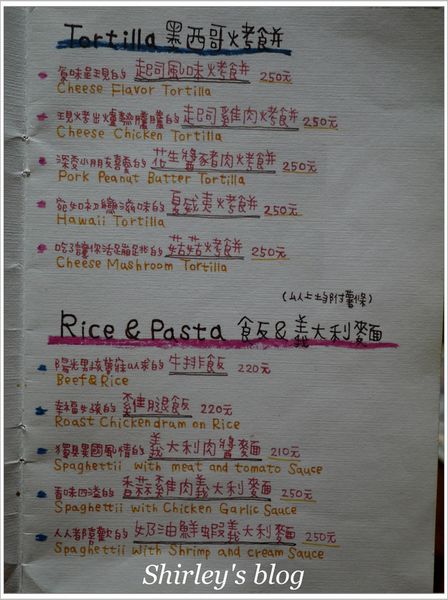 Tortilla 墨西哥烤餅
原味呈現的 起司風味烤餅 250元
Cheese Flavor Tortilla
現烤出爐熱騰騰的 起司雞肉烤餅 250元
Cheese Chicken Tortilla
深受小朋友喜愛的 花生醬豬肉烤餅 250元
Pork Peanut Butter Tortilla
宛如初戀滋味的 夏威夷烤餅 250元
Hawaii Tortilla
吃了讓你活蹦亂跳的 菇菇烤餅 250元
Cheese Mushroom Tortilla
(以上均附薯條)
Rice & Pasta 飯&義大利麵
陽光男孩難以抗拒的 牛排飯 220元
Beef & Rice
幸福女孩的 雞腿飯 220元
Roast Chicken dram on Rice
獨具異國風情的 義大利肉醬麵 210元
Spaghettii with meat and tomato Sauce
香味四溢的 香蒜雞肉義大利麵 250元
Spaghettii with Chicken Garlic Sauce
人人都喜歡的 奶油鮮蝦義大利麵 250元
Spaghettii with Shrimp and cream Sauce
Shirley's blog